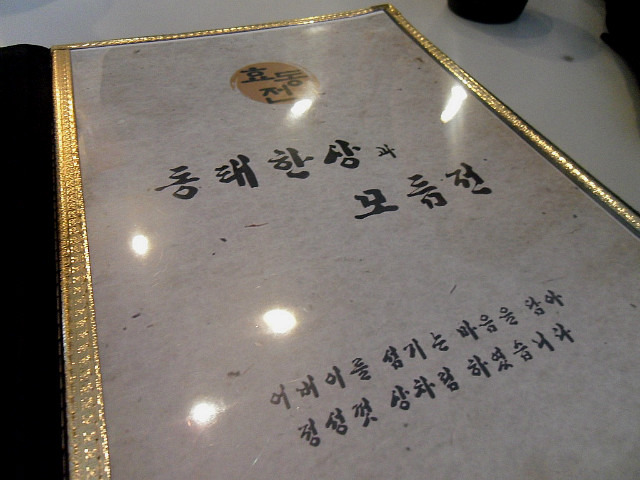 효동
전
동태한상과
모듬전
어버이를 섬기는 마음을 담아
정성껏 상차림 하였습니다